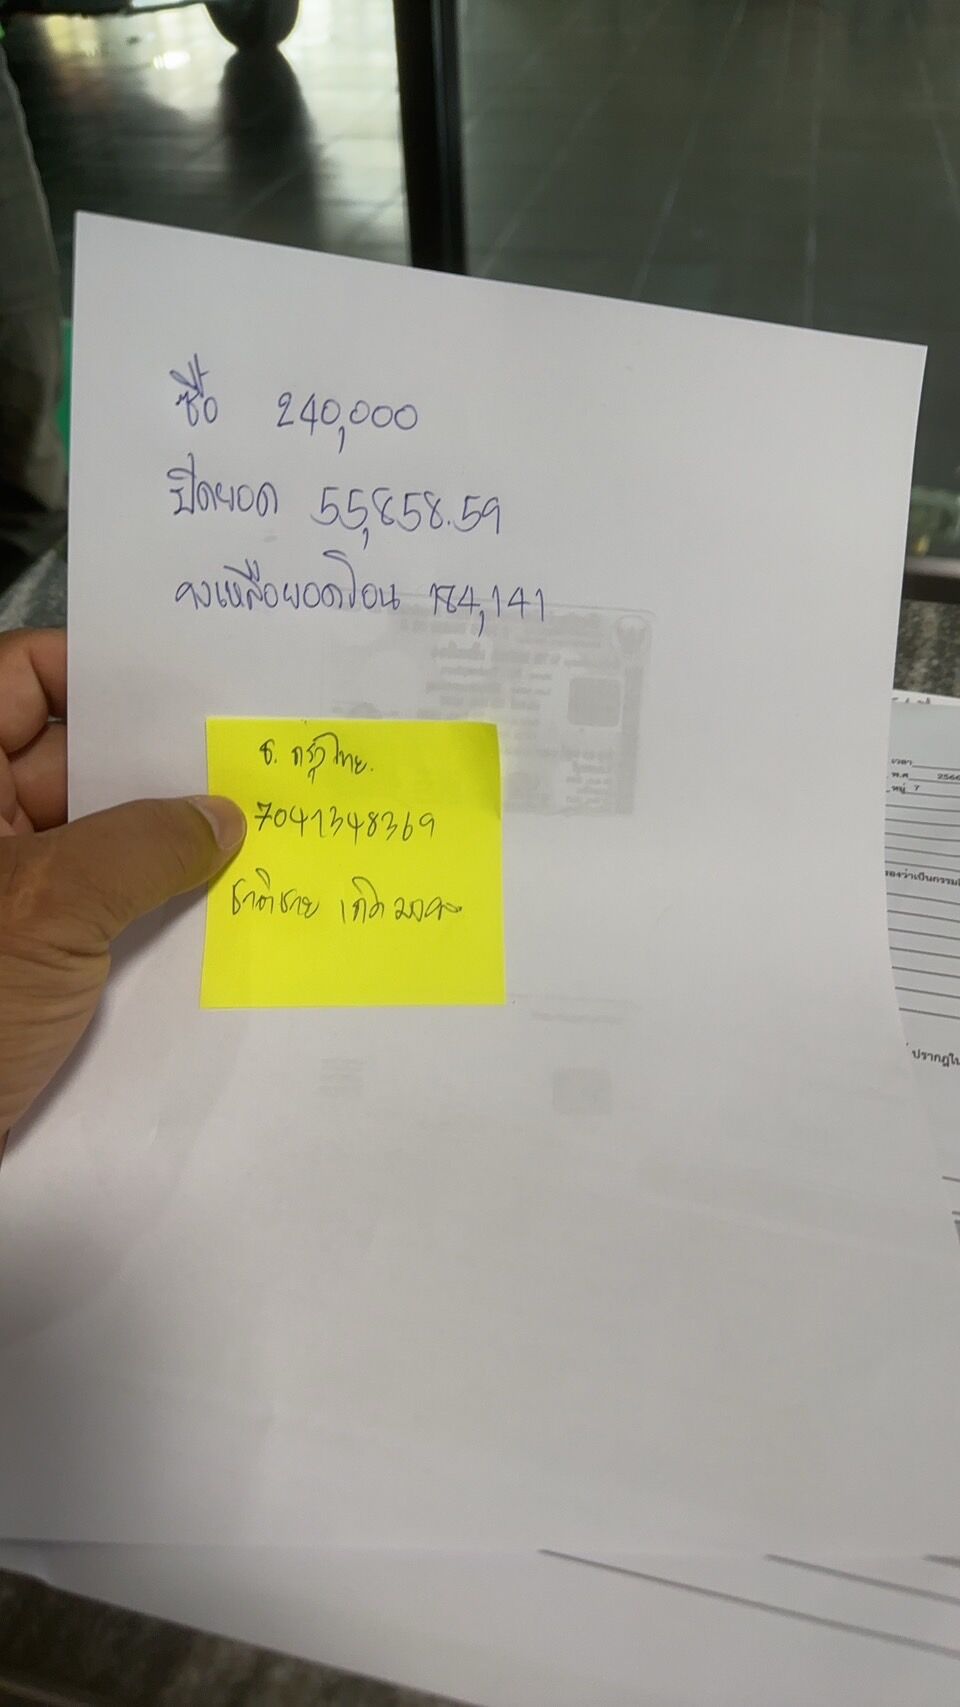 ซื้อ 240,000
ปิดยอด 55,858.59
คงเหลือยอดโอน 184,141
ธ. กรุงไทย.
7041348369
ชาติชาย เกิด
เวลา
พ.ศ 2566
หมู่ 7
ปรากฏใน